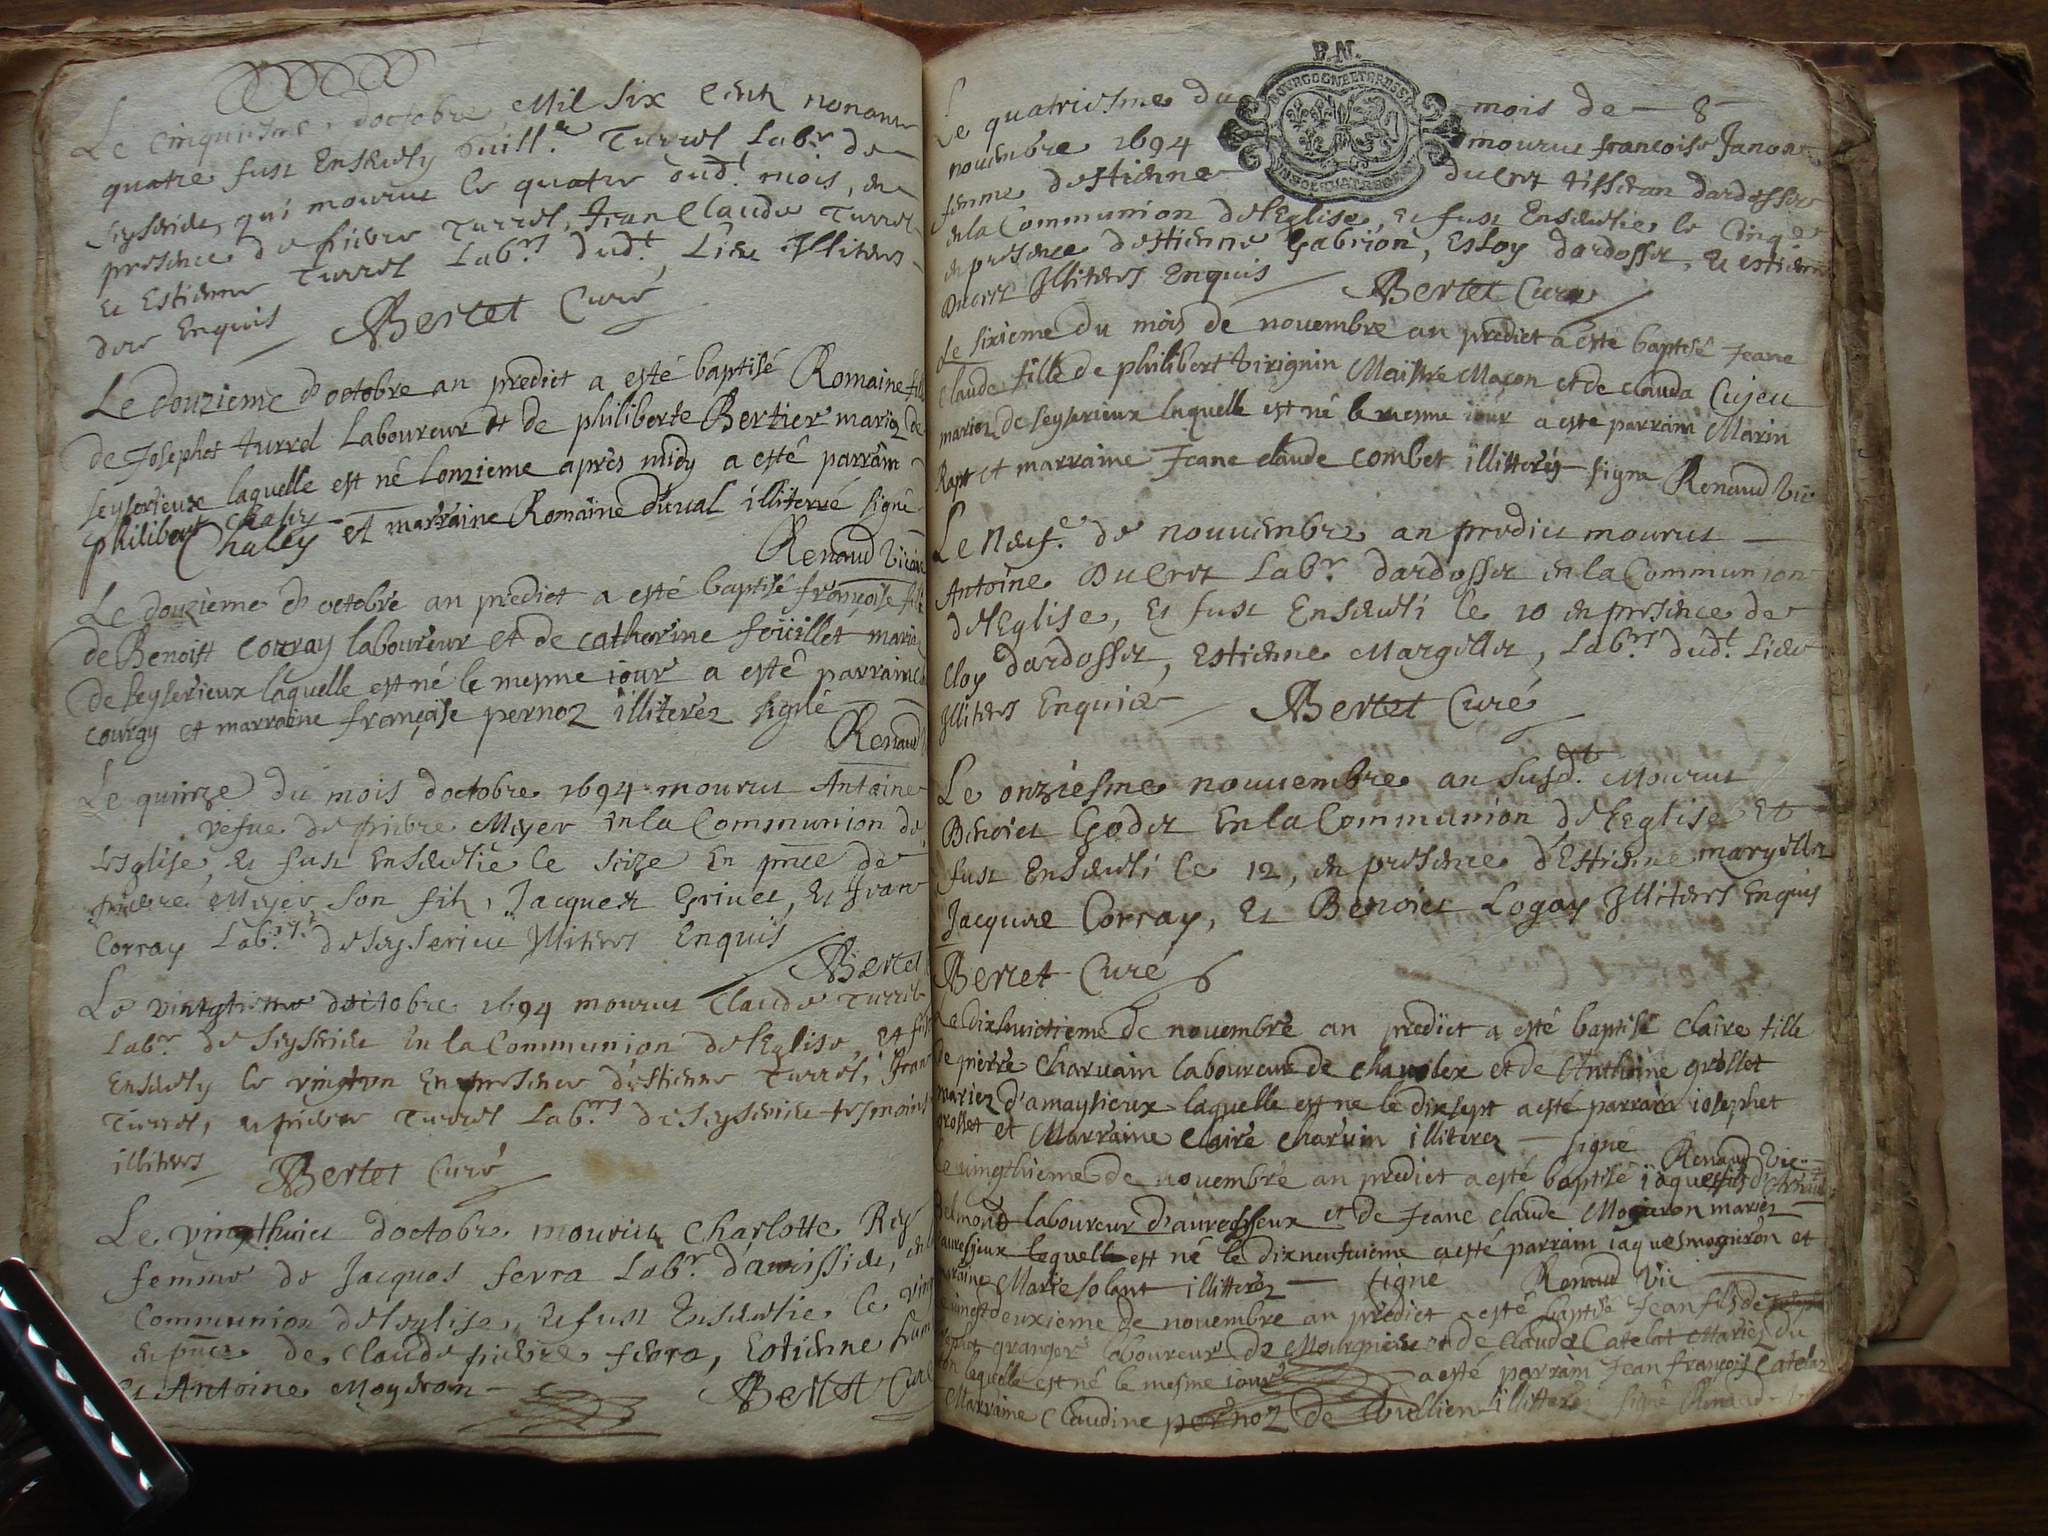 Le cinquiesme doctobre Mil six cent nonante
quatre fust Ensevely Guill.e Turrel Lab.r de
qui mourut le quatre dud.t mois, en
presence de pierre Turrel, Jean Claude Turrel
et Estienne Turrel Lab.rs dud.t Lieu Illiteres
Enquis Bertet Curé
Le douzieme d'octobre an predict a esté baptisé Romaine fille
de Josephet turrel Laboureur et de philiberte Bertier mariez de
seyserieux laquelle est né lonzieme apres midy a esté parrain
philibert Chaley et marraine Romaine duval illiterré signé
Renaud vicaire
Le douzieme d'octobre an predict a esté baptisé francoise fille
de Benoist corray laboureur et de catherine foüillet mariez
de seyserieux laquelle est né le mesme iour a esté parrain
couray et marraine françoise pernoz illiterez signé
Renaud
Le quinze du mois doctobre 1694 mourut Antoine
vefue de pierre Meyer en la Communion de
lesglise, et fust Ensevelie le seize En pnce de
pierre Meyer son fils, Jacques Grinet, et Jean
Corray Lab.rs de seyserieu Illiteres Enquis
Bertet
Le vingtieme doctobre 1694 mourut Claude Turrel
Lab.r de seyserieu En la Communion de l'Eglise, et fust
Ensevely le vingtun En presence d'estienne Turrel, Jean
Turrel, et pierre Turrel Lab.rs de seyserieu tesmoins
illiteres Bertet Curé
Le vingthuict doctobre mourut Charlotte Rey
femme de Jacques ferra Lab.r
Communion de leglise, et fust Ensevelie le
en pnce de Claude pierre ferra, Estienne
et Antoine Bertet Curé
Le quatriesme du mois de
novembre 1694 mourut francoise
femme destienne ducret tisseran dardosset
en la Communion de l'Eglise, et fust Ensevelie le Cinq.e
en presence destienne Gabrion, Esloy dardosset, et estienne
Ducret Illiteres Enquis Bertet Curé
Le sixieme du mois de novembre an predict a esté baptisé Jeane
claude fille de philibert virignin Maistre Maçon et de clauda Cujeu
mariez de seyserieux laquelle est né le mesme iour a esté parrain Marin
Rapt et marraine Jeane claude combet illitterés signe Renaud vic
Le Neuf.e de nouuembre an predict mourut
Antoine Ducret Lab.r dardosset en la Communion
de l'Eglise, et fust Enseveli le 10 en presence de
Cloy dardosset, Estienne Margillet, Lab.rs dud.t Lieu
Illiteres Enquis Bertet Curé
Le onziesme nouuembre an susd.t Mourut
Benoict Godet En la Communion de l'Eglise Et
fust Enseveli le 12, en presence d'Estienne margillet
Jacques Corray, et Benoict Logoy Illiteres Enquis
Bertet Curé
Le dixhuictieme de novembre an predict a esté baptisé claire fille
de pierre charvain laboureur de et de Anthoine grosset
mariez d'amaysieux laquelle est ne le dixsept a esté parrain iosephet
grosset et Marraine claire charvin illiterez signé Renaud Vic
Le vingthieme de novembre an predict a esté baptisé iaques fils
Belmont laboureur d'auressieux et de Jeane claude Mogniron mariez
lequelle est né le dixneufuieme a esté parrain iaques mogniron et
Marie solant illitterez signe Renaud Vic
vingtdeuxieme de novembre an predict a esté baptisé Jean fils de
granger laboureur de et de claude Catelat Mariez du
lequelle est né le mesme iour a esté parrain Jean françois catelaz
Marraine Claudine pernoz de illitterez signé Renaud